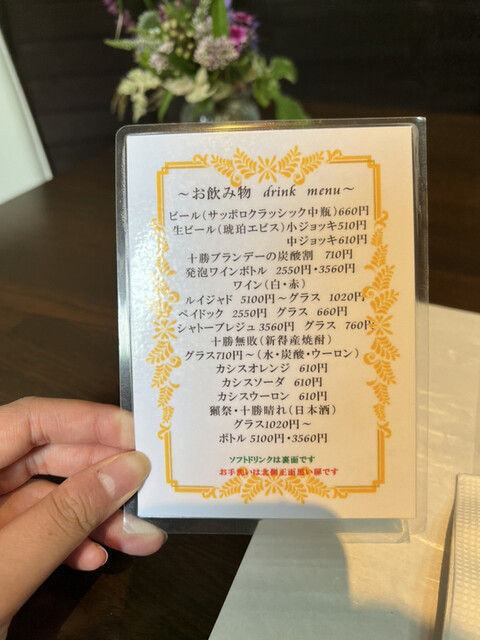 ～お飲み物 drink menu～
ビール(サッポロクラッシック中瓶)660円
生ビール(琥珀エビス)小ジョッキ510円
中ジョッキ610円
十勝ブランデーの炭酸割 710円
発泡ワインボトル 2550円・3560円
ワイン(白・赤)
ルイジャド 5100円～グラス 1020円
ペイドック 2550円 グラス 660円
シャトーブレジュ3560円 グラス 760円
十勝無敗(新得産焼酎)
グラス710円～(水・炭酸・ウーロン)
カシスオレンジ 610円
カシスソーダ 610円
カシスウーロン 610円
獺祭・十勝晴れ(日本酒)
グラス1020円～
ボトル 5100円・3560円
ソフトドリンクは裏面です
お手洗いは北側正面黒い扉です